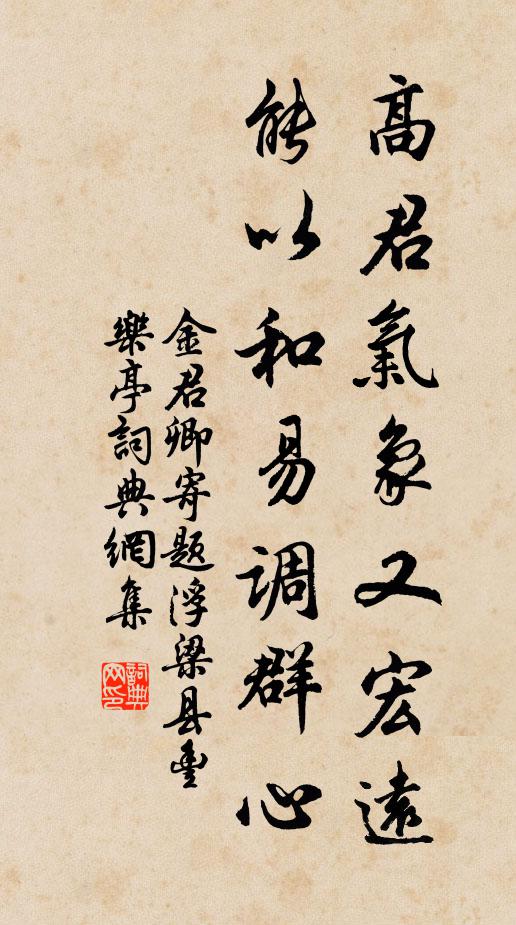 高君氣象又宏遠
能以和易調群心
金君卿寄題浮梁县豐
樂亭詞典網集
詞典網印